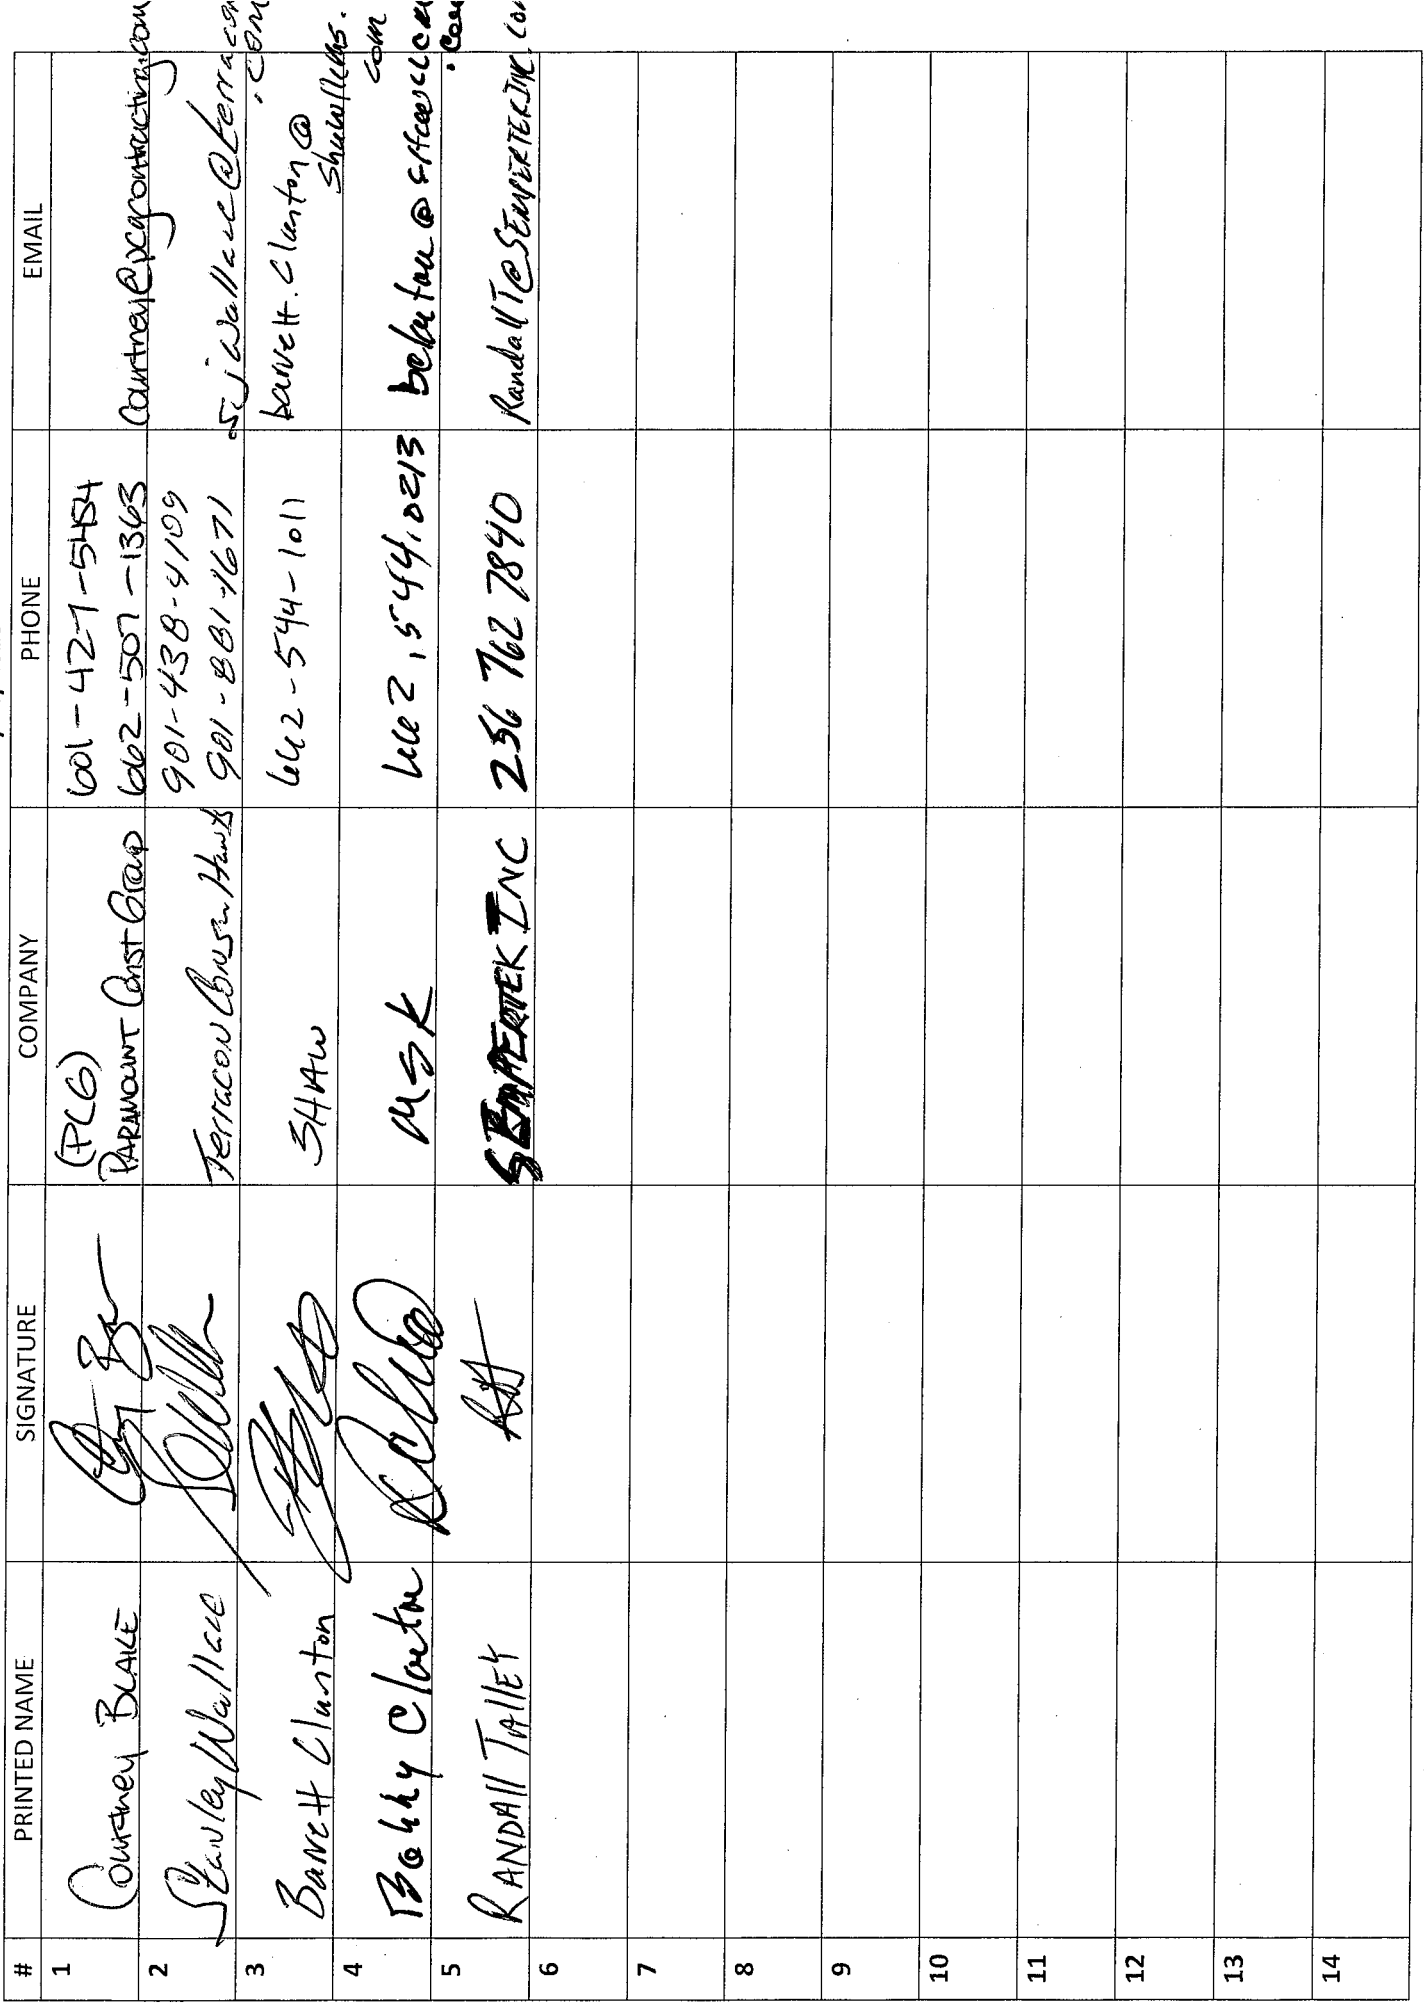 # PRINTED NAME SIGNATURE COMPANY PHONE EMAIL
1 Courtney BLAKE (PCG) 601-427-5454
PARAMOUNT Const Group 662-507-1363 Courtney@pcgcontracting.com
2 Stanley Wallace 901-438-4109
Terracon Consultants 901-881-1671 sjwallace@terracon
.com
3 Barrett Clanton SHAW 662-544-1011 barrett.clanton@
shawllcms.
com
4 Bobby Clanton MSK 662.544.0213
.com
5 RANDAll TAllEY SEMPERTEK INC 256 762 7840 RandallT@SEMPERTEKINC.com
6
7
8
9
10
11
12
13
14